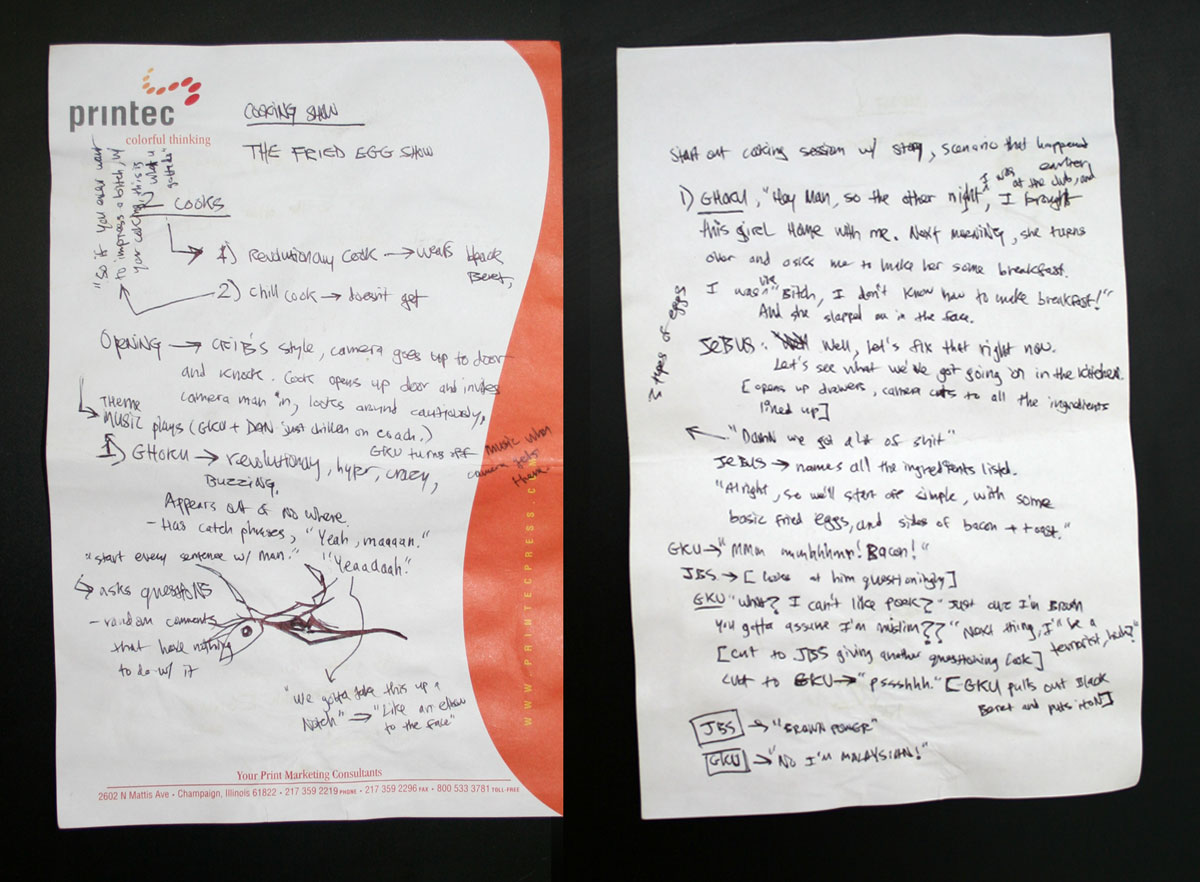 printec
colorful thinking
COOKING SHOW
THE FRIED EGG SHOW
"So if you ever want
to impress a bitch, w/
your cooking this is
what u
gotta"
COOKS
1) Revolutionary cook → wears black
Beret,
2) chill cook → doesn't get
Opening → CRIBS style, camera goes up to door
and knock. Cook opens up door and invites
camera man in, looks around cautiously.
THEME
music plays (GKU + DAN just chillen on coach.)
GKU turns off music when
camera gets
there.
1) GHOKU → revolutionary, hyper, crazy,
BUZZING,
Appears out of no where.
- Has catch phrases, "Yeah, maaaan."
"start every sentence w/ man." "Yeaadaah."
↳ asks questions
- random comments
that have nothing
to do w/ it
"We gotta take this up a
Notch" → "Like an elbow
to the face"
WWW.PRINTECPRESS.COM
Your Print Marketing Consultants
2602 N Mattis Ave • Champaign, Illinois 61822 • 217 359 2219 PHONE • 217 359 2296 FAX • 800 533 3781 TOLL-FREE
Start out cooking session w/ story, scenario that happened
earlier
1) GHOKU, "Hey Man, so the other night, I was at the club, and I brought
this girl Home with me. Next morning, she turns
over and asks me to make her some breakfast.
I was like "Bitch, I don't know how to make breakfast!"
And she slapped me in the face.
3 types of eggs
JEBUS: Well, Let's fix that right now.
Let's see what we've got going on in the kitchen.
[opens up drawers, camera cuts to all the ingredients
lined up]
← "Damn we got a lot of shit"
JEBUS → names all the ingredients listed.
"Alright, so we'll start off simple, with some
basic fried eggs, and sides of bacon + toast."
GKU → "MMm muhhhmm! Bacon!"
JBS → [looks at him questioningly]
GKU "What? I can't like pork?" Just cuz I'm Brown
You gotta assume I'm muslim?? "Next thing, I'll be a
terrorist, huh?"
[cut to JBS giving another questioning look]
cut to GKU → "pssshhh." [GKU pulls out Black
Beret and puts it on]
JBS → "BROWN POWER"
GKU → "NO I'M MALAYSIAN!"